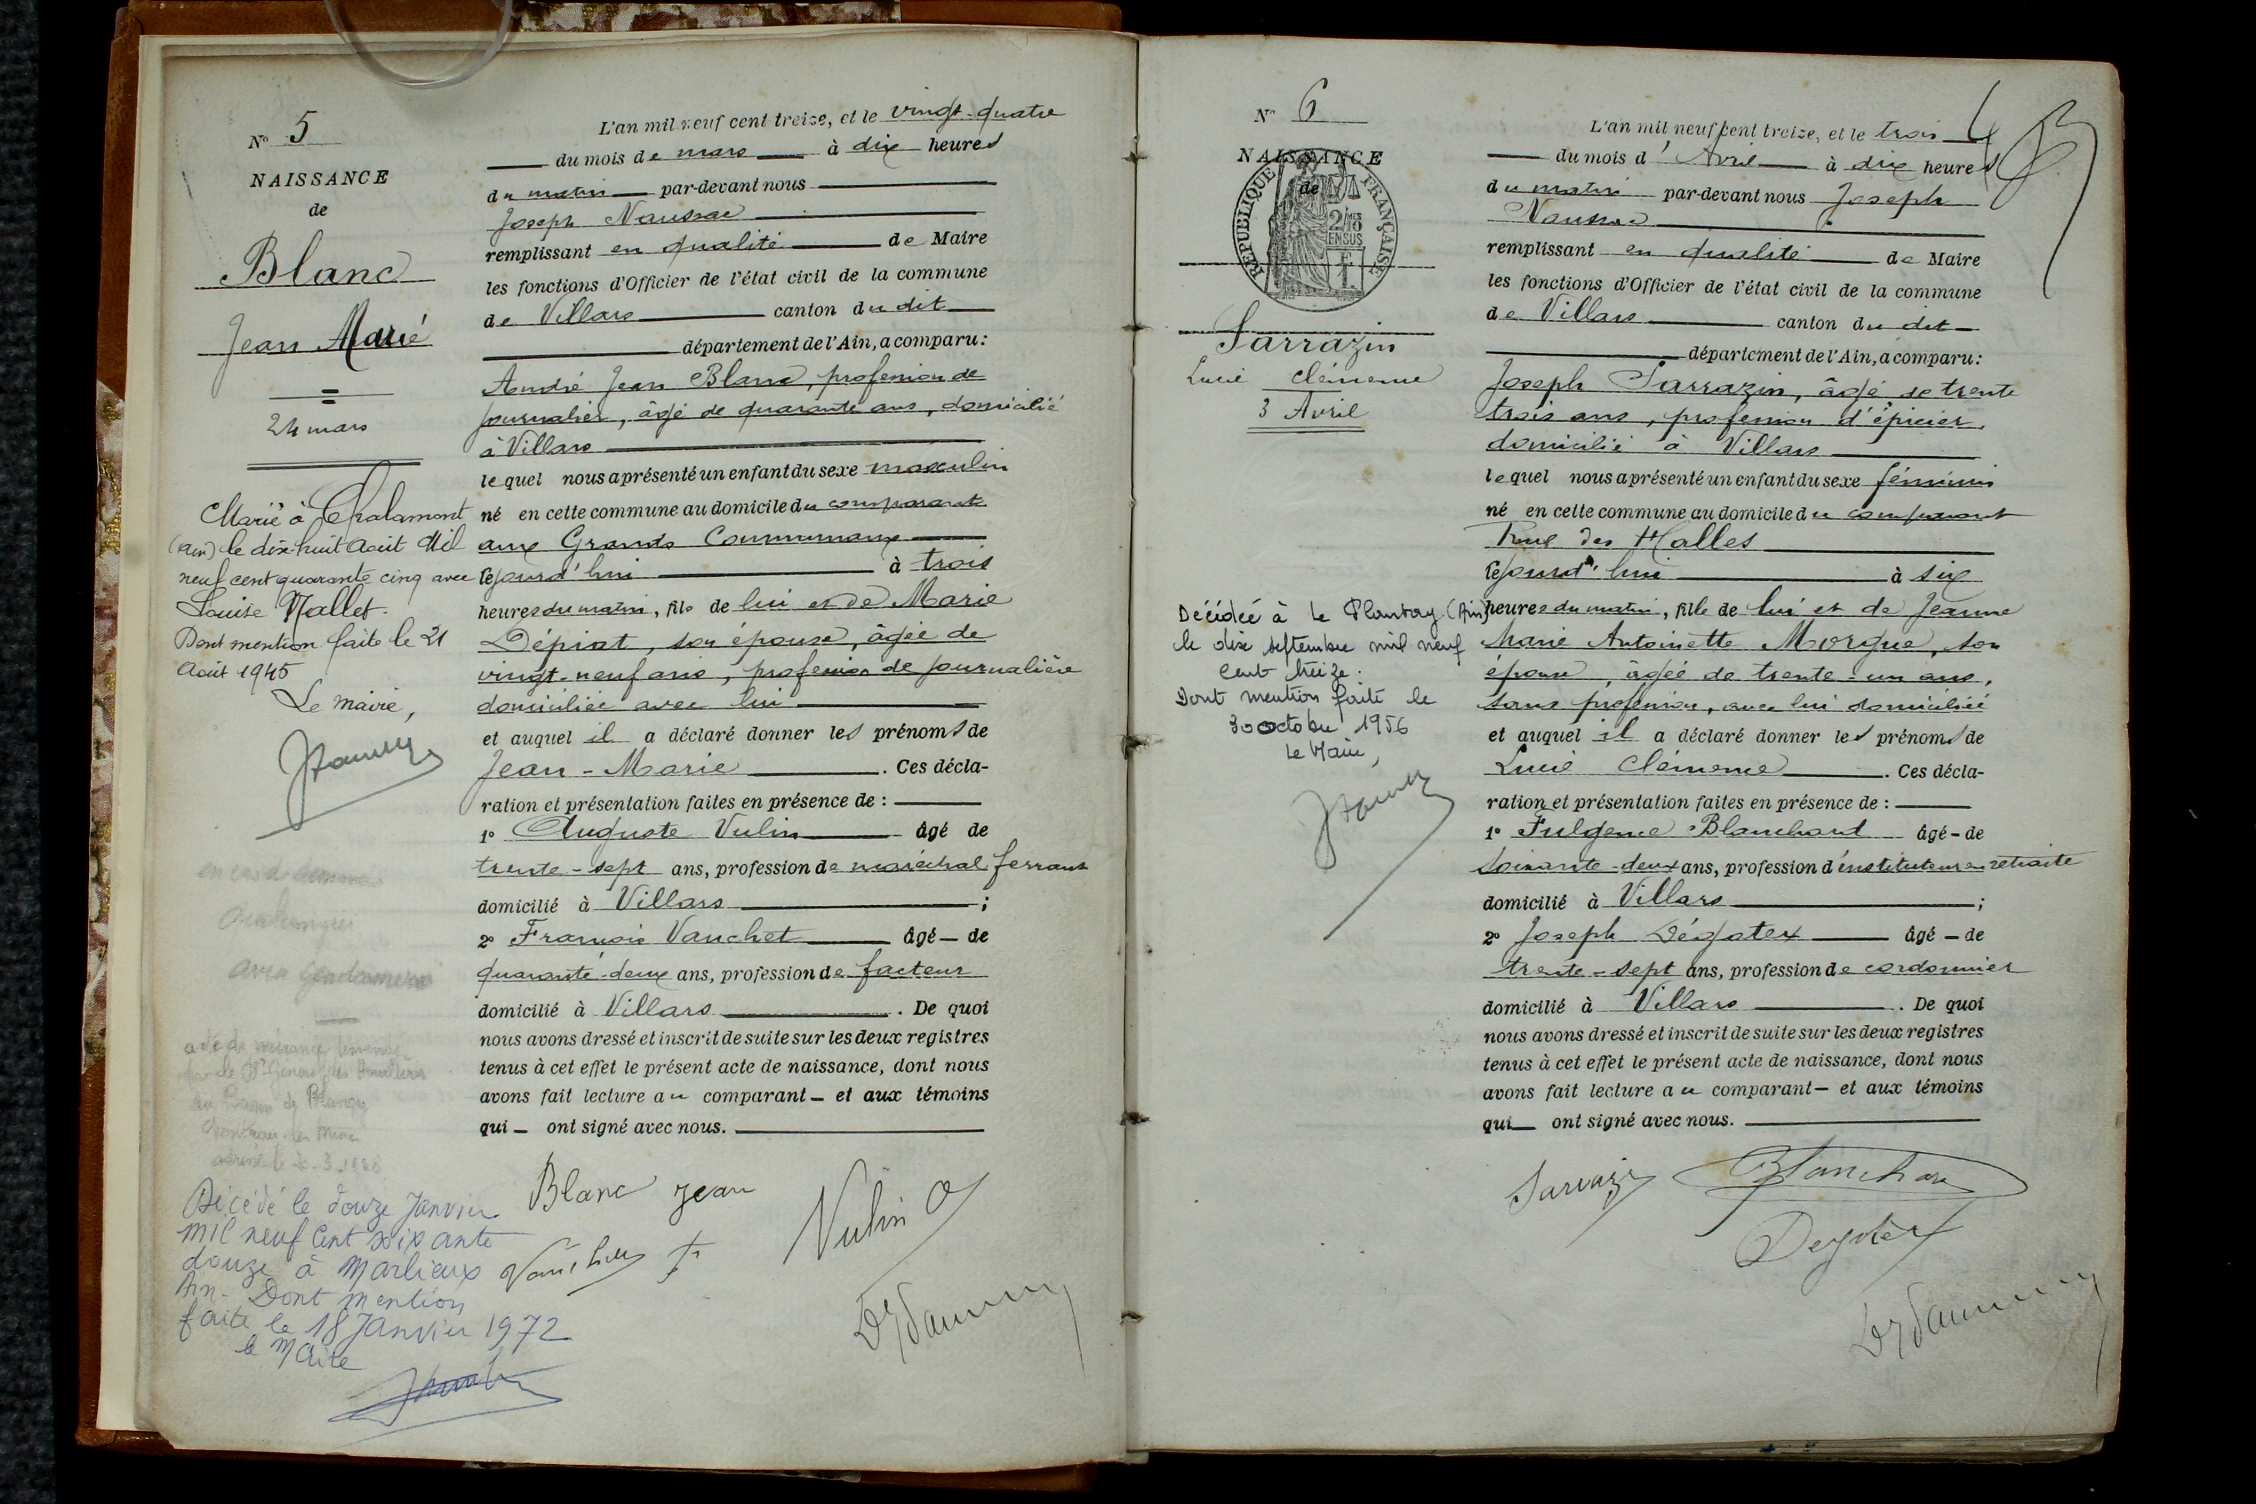 N° 5
NAISSANCE
de
Blanc
Jean Marie
24 mars
Marié à Chalamont
(Ain) le dix-huit Août Mil
neuf cent quarante cinq avec
Louise Mallet.
Dont mention faite le 21
Août 1945
Le maire,
avis gendarmerie
Décédé le douze Janvier
mil neuf Cent soixante
douze à Marlieux
Ain - Dont mention
faite le 18 Janvier 1972
le Maire
L'an mil neuf cent treize, et le vingt-quatre
du mois de mars à dix heures
du matin par-devant nous
Joseph Naussac
remplissant en qualité de Maire
les fonctions d'Officier de l'état civil de la commune
de Villars canton du dit
département de l'Ain, a comparu:
André Jean Blanc, profession de
journalier, âgé de quarante ans, domicilié
à Villars
lequel nous a présenté un enfant du sexe masculin
né en cette commune au domicile du comparant
aux Grands Communaux
lejourd'hui à trois
heures du matin, fils de lui et de Marie
Dépiat, son épouse, âgée de
vingt-neuf ans, profession de journalière
domiciliée avec lui
et auquel il a déclaré donner les prénoms de
Jean-Marie . Ces décla-
ration et présentation faites en présence de :
1° Auguste Vulin âgé de
trente-sept ans, profession de maréchal ferrant
domicilié à Villars ;
2° François Vauchet âgé - de
quarante-deux ans, profession de facteur
domicilié à Villars . De quoi
nous avons dressé et inscrit de suite sur les deux registres
tenus à cet effet le présent acte de naissance, dont nous
avons fait lecture au comparant - et aux témoins
qui - ont signé avec nous.
Blanc Jean
Vulin
N° 6
NAISSANCE
de
RÉPUBLIQUE FRANÇAISE
2/10 EN SUS
Sarrazin
Lucie Clémence
3 Avril
Décédée à Le Plantay (Ain)
le dix septembre mil neuf
cent treize.
Dont mention faite le
30 octobre 1956
Le Maire,
L'an mil neuf cent treize, et le trois
du mois d'Avril à dix heures
du matin par-devant nous Joseph
Naussac
remplissant en qualité de Maire
les fonctions d'Officier de l'état civil de la commune
de Villars canton du dit
département de l'Ain, a comparu:
Joseph Sarrazin, âgé de trente
trois ans, profession d'épicier,
domicilié à Villars
lequel nous a présenté un enfant du sexe féminin
né en cette commune au domicile du comparant
Rue des Halles
lejourd'hui à six
heures du matin, fille de lui et de Jeanne
Marie Antoinette Morgue, son
épouse, âgée de trente-un ans,
sans profession, avec lui domiciliée
et auquel il a déclaré donner les prénoms de
Lucie Clémence . Ces décla-
ration et présentation faites en présence de :
1° Fulgence Blanchard âgé - de
soixante-deux ans, profession d'instituteur en retraite
domicilié à Villars ;
2° Joseph Dégatex âgé - de
trente-sept ans, profession de cordonnier
domicilié à Villars . De quoi
nous avons dressé et inscrit de suite sur les deux registres
tenus à cet effet le présent acte de naissance, dont nous
avons fait lecture au comparant - et aux témoins
qui ont signé avec nous.
Sarrazin Blanchard